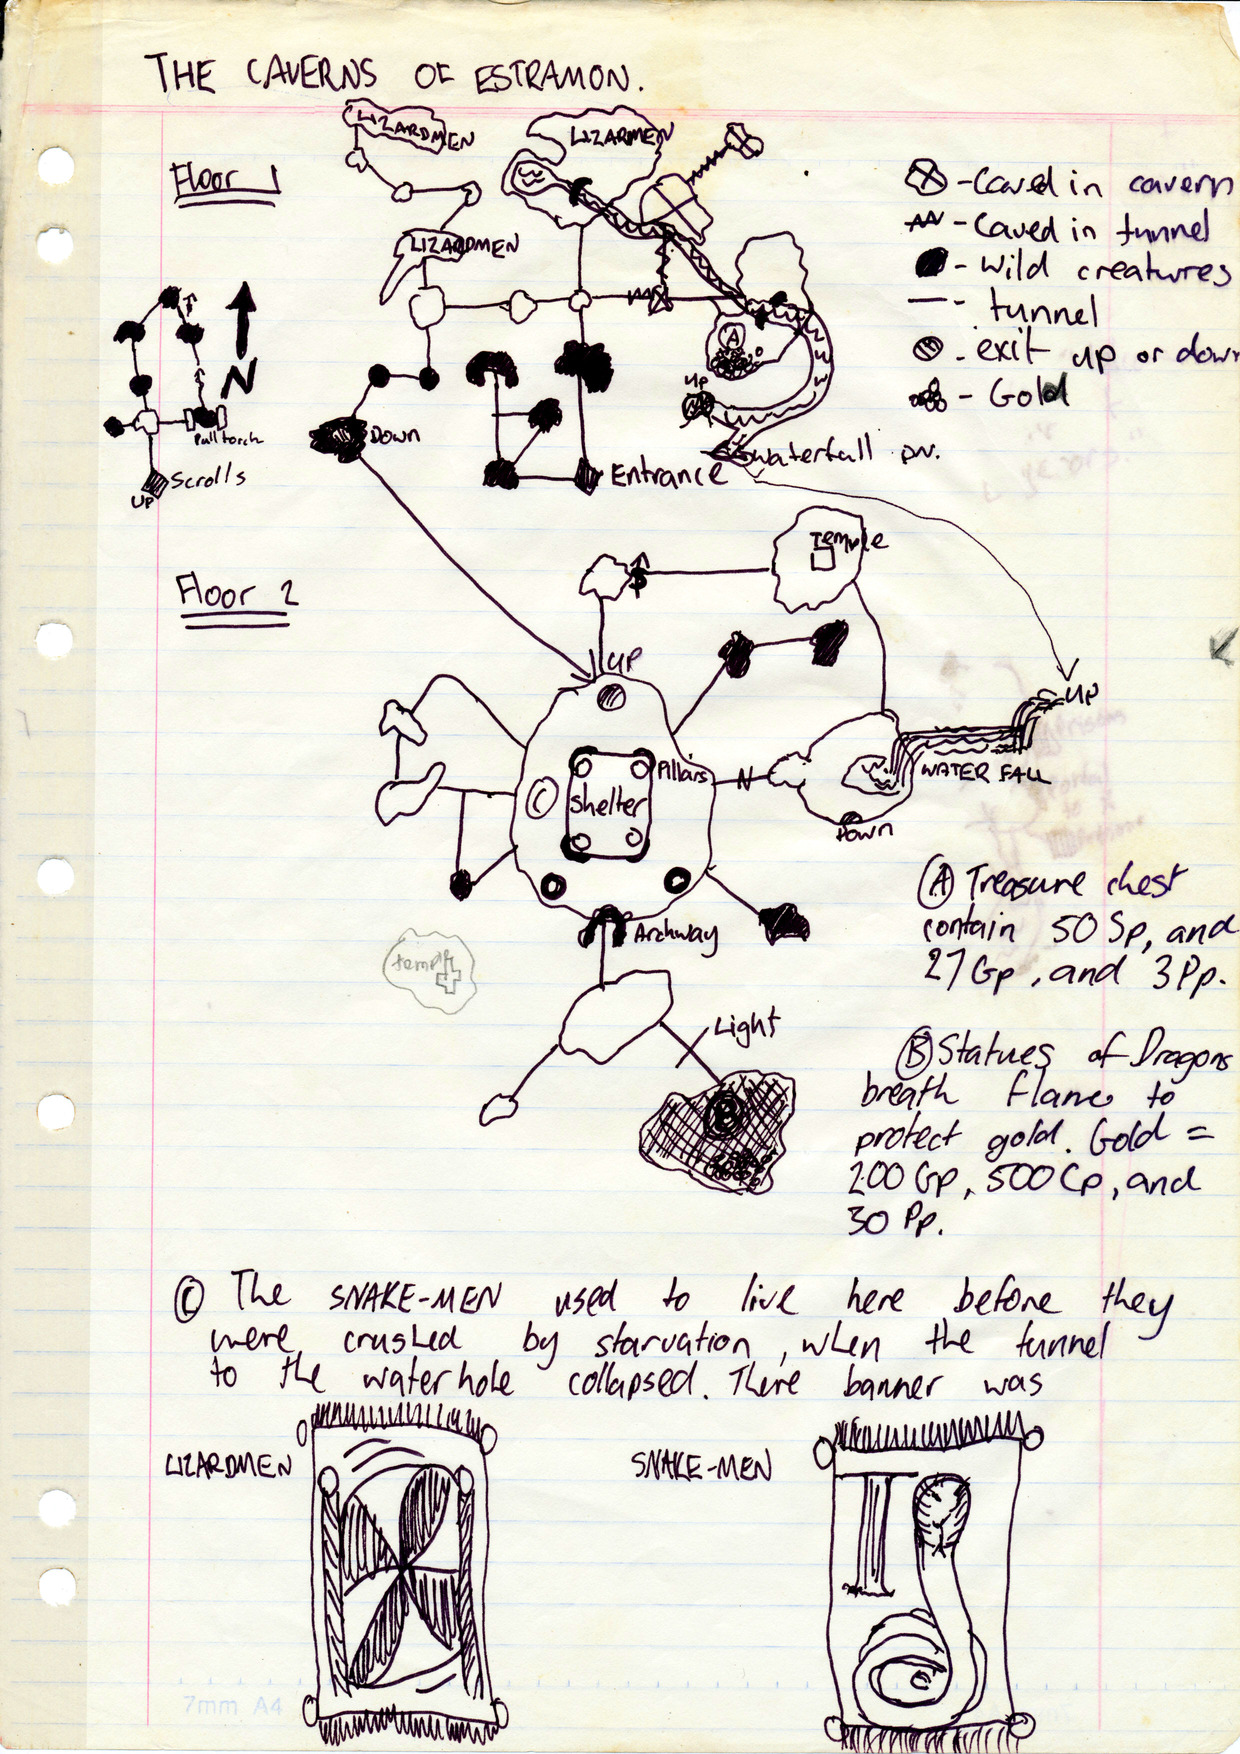 THE CAVERNS OF ESTRAMON.
LIZARDMEN
LIZARMEN
Floor 1
LIZARDMEN
N
Pull torch
Scrolls
UP
Down
Entrance
A
UP
waterfall DN.
- Caved in cavern
- Caved in tunnel
- Wild creatures
- tunnel
- exit up or down
- Gold
Floor 2
Temple
UP
UP
Pillars
Shelter
C
N
WATER FALL
Down
Archway
temple
Light
B
(A) Treasure chest
contain 50 Sp, and
27 Gp, and 3 Pp.
(B) Statues of Dragons
breath flame to
protect gold. Gold =
200 Gp, 500 Cp, and
30 Pp.
(C) The SNAKE-MEN used to live here before they
were crushed by starvation, when the tunnel
to the waterhole collapsed. There banner was
LIZARDMEN
SNAKE-MEN
7mm A4